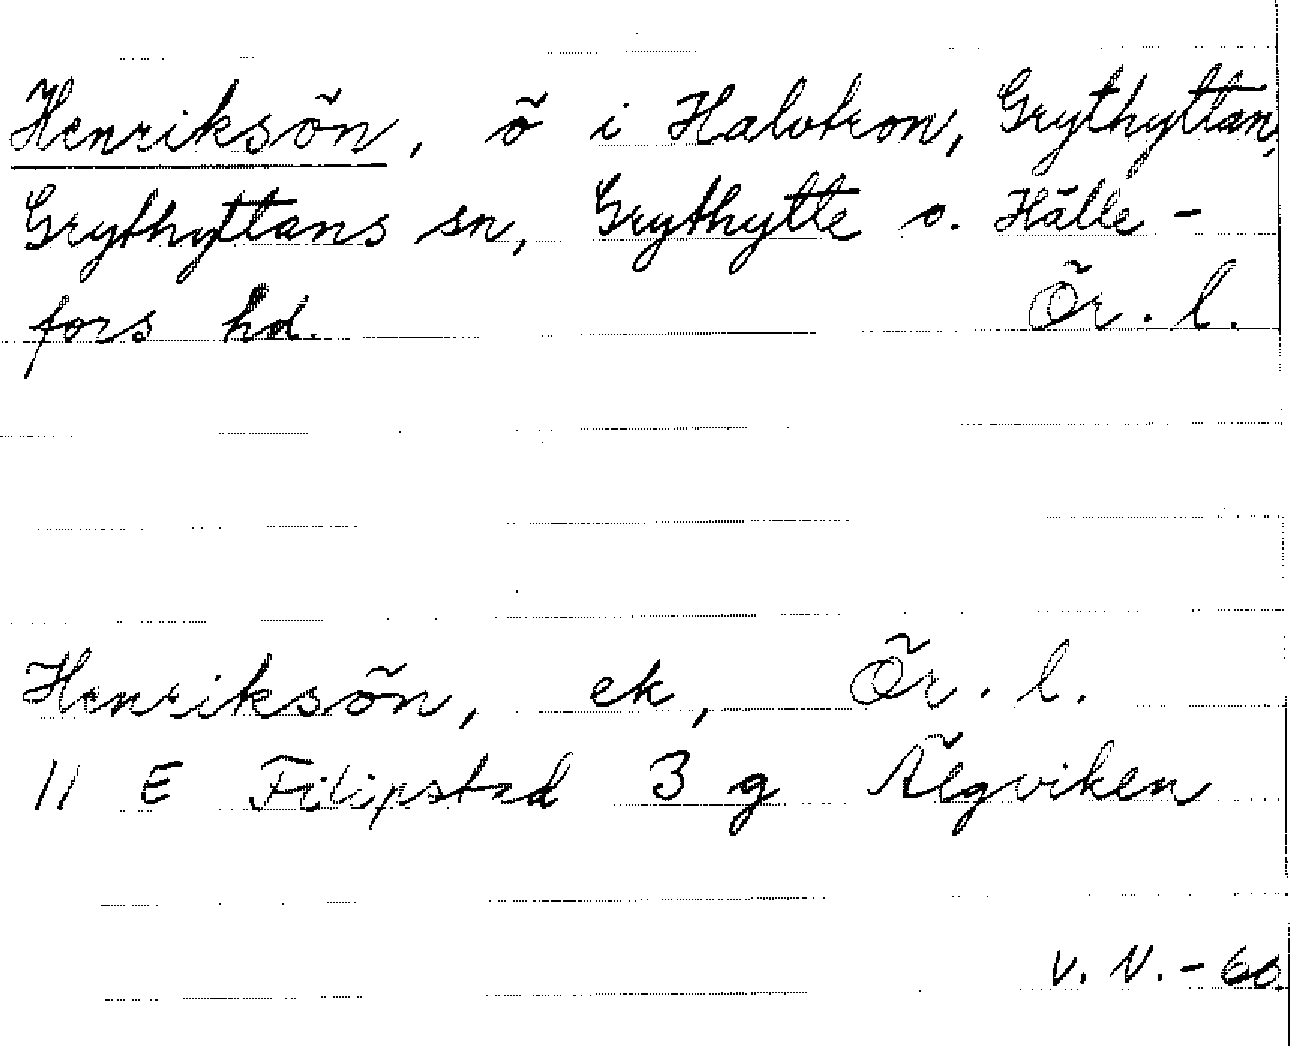 Henriksön, ö i Halvtron, Grythyttan,
Grythyttans sn, Grythytte o. Hälle-
fors hd. Ör. l.
Henriksön, ek, Ör. l.
11 E Filipstad 3 g Älgviken
V. N. - 60.